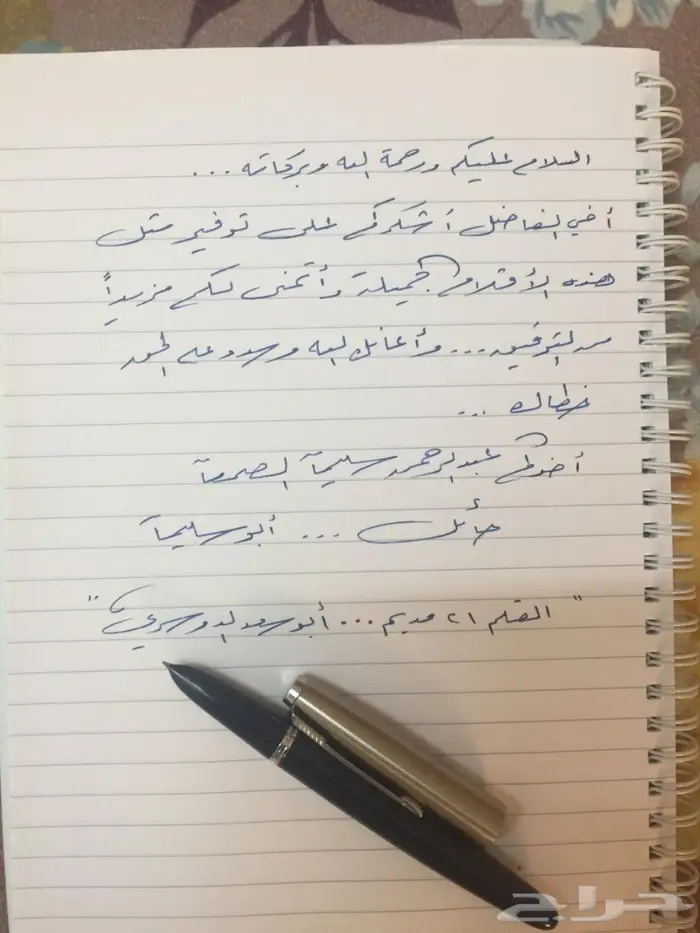 السلام عليكم ورحمة الله وبركاته ...
أخي الفاضل أشكركم على توفير مثل
هذه الأقلام الجميلة وأتمنى لكم مزيداً
من التوفيق ... وأعانك الله وسدد على الحق
خطاك ...
أخوكم عبدالرحمن سليمان
حائل ... أبو سليمان
" القلم ٢١ قديم ... أبو سعد الدوسري "
حراج